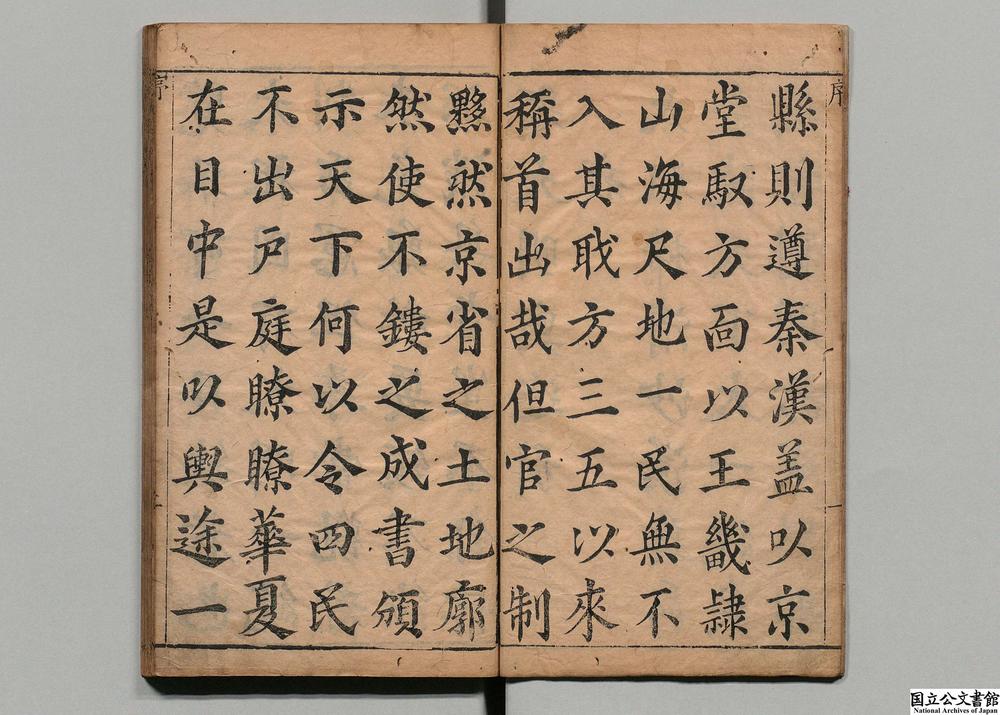 序
縣則遵秦漢盖以京
堂馭方面以王畿隷
山海尺地一民無不
入其職方三五以來
稱首出哉但官之制
黟然京省之土地廓
然使不鏤之成書頒
示天下何以令四民
不出戶庭瞭瞭華夏
在目中是以輿途一
序
国立公文書館
National Archives of Japan